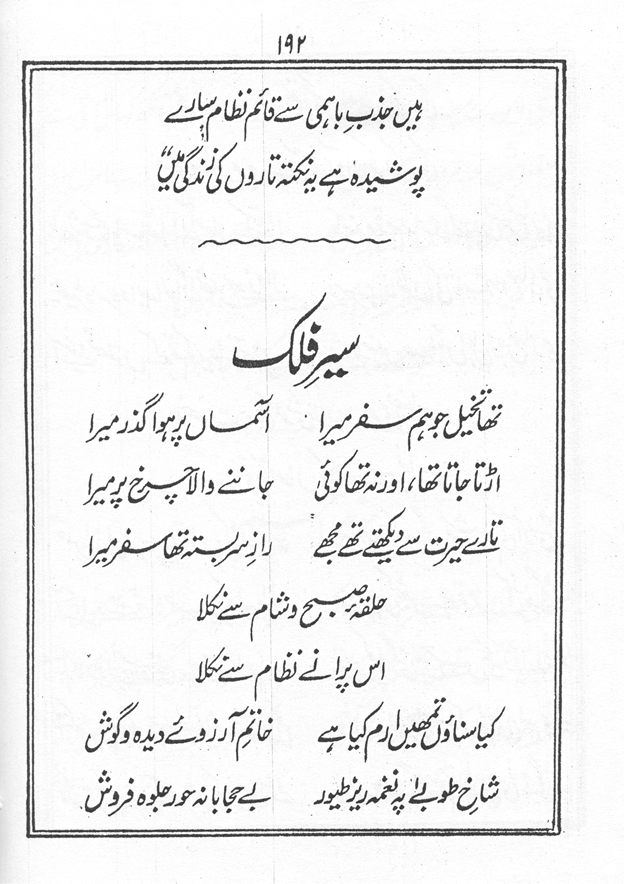 ۱۹۲
ہیں جذبِ باہمی سے قائم نظام سارے
پوشیدہ ہے یہ نکتہ تاروں کی زندگی میں"
سیرِ فلک
تھا تخیل جو ہم سفر میرا آسماں پر ہوا گذر میرا
اڑتا جاتا تھا، اور نہ تھا کوئی جاننے والا چرخ پر میرا
تارے حیرت سے دیکھتے تھے مجھے رازِ سربستہ تھا سفر میرا
حلقۂ صبح و شام سے نکلا
اس پرانے نظام سے نکلا
کیا سناؤں تمھیں ارم کیا ہے خاتمِ آرزوئے دیدہ و گوش
شاخِ طوبےٰ پہ نغمہ ریز طیور بے حجابانہ حور جلوہ فروش